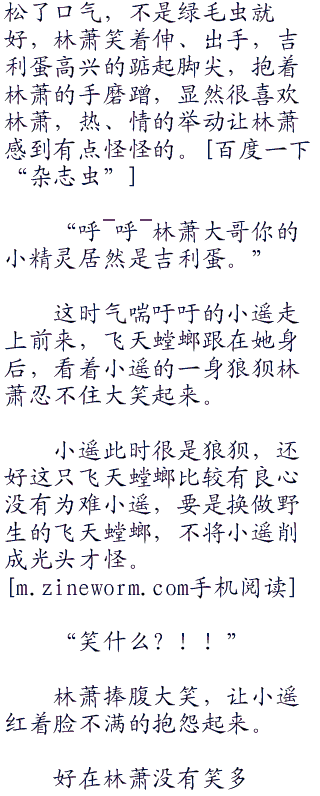 松了口气，不是绿毛虫就
好，林萧笑着伸、出手，吉
利蛋高兴的踮起脚尖，抱着
林萧的手磨蹭，显然很喜欢
林萧，热、情的举动让林萧
感到有点怪怪的。[百度一下
“杂志虫”]
“呼ˉ呼ˉ林萧大哥你的
小精灵居然是吉利蛋。”
这时气喘吁吁的小遥走
上前来，飞天螳螂跟在她身
后，看着小遥的一身狼狈林
萧忍不住大笑起来。
小遥此时很是狼狈，还
好这只飞天螳螂比较有良心
没有为难小遥，要是换做野
生的飞天螳螂，不将小遥削
成光头才怪。
[m.zineworm.com手机阅读]
“笑什么？！！”
林萧捧腹大笑，让小遥
红着脸不满的抱怨起来。
好在林萧没有笑多